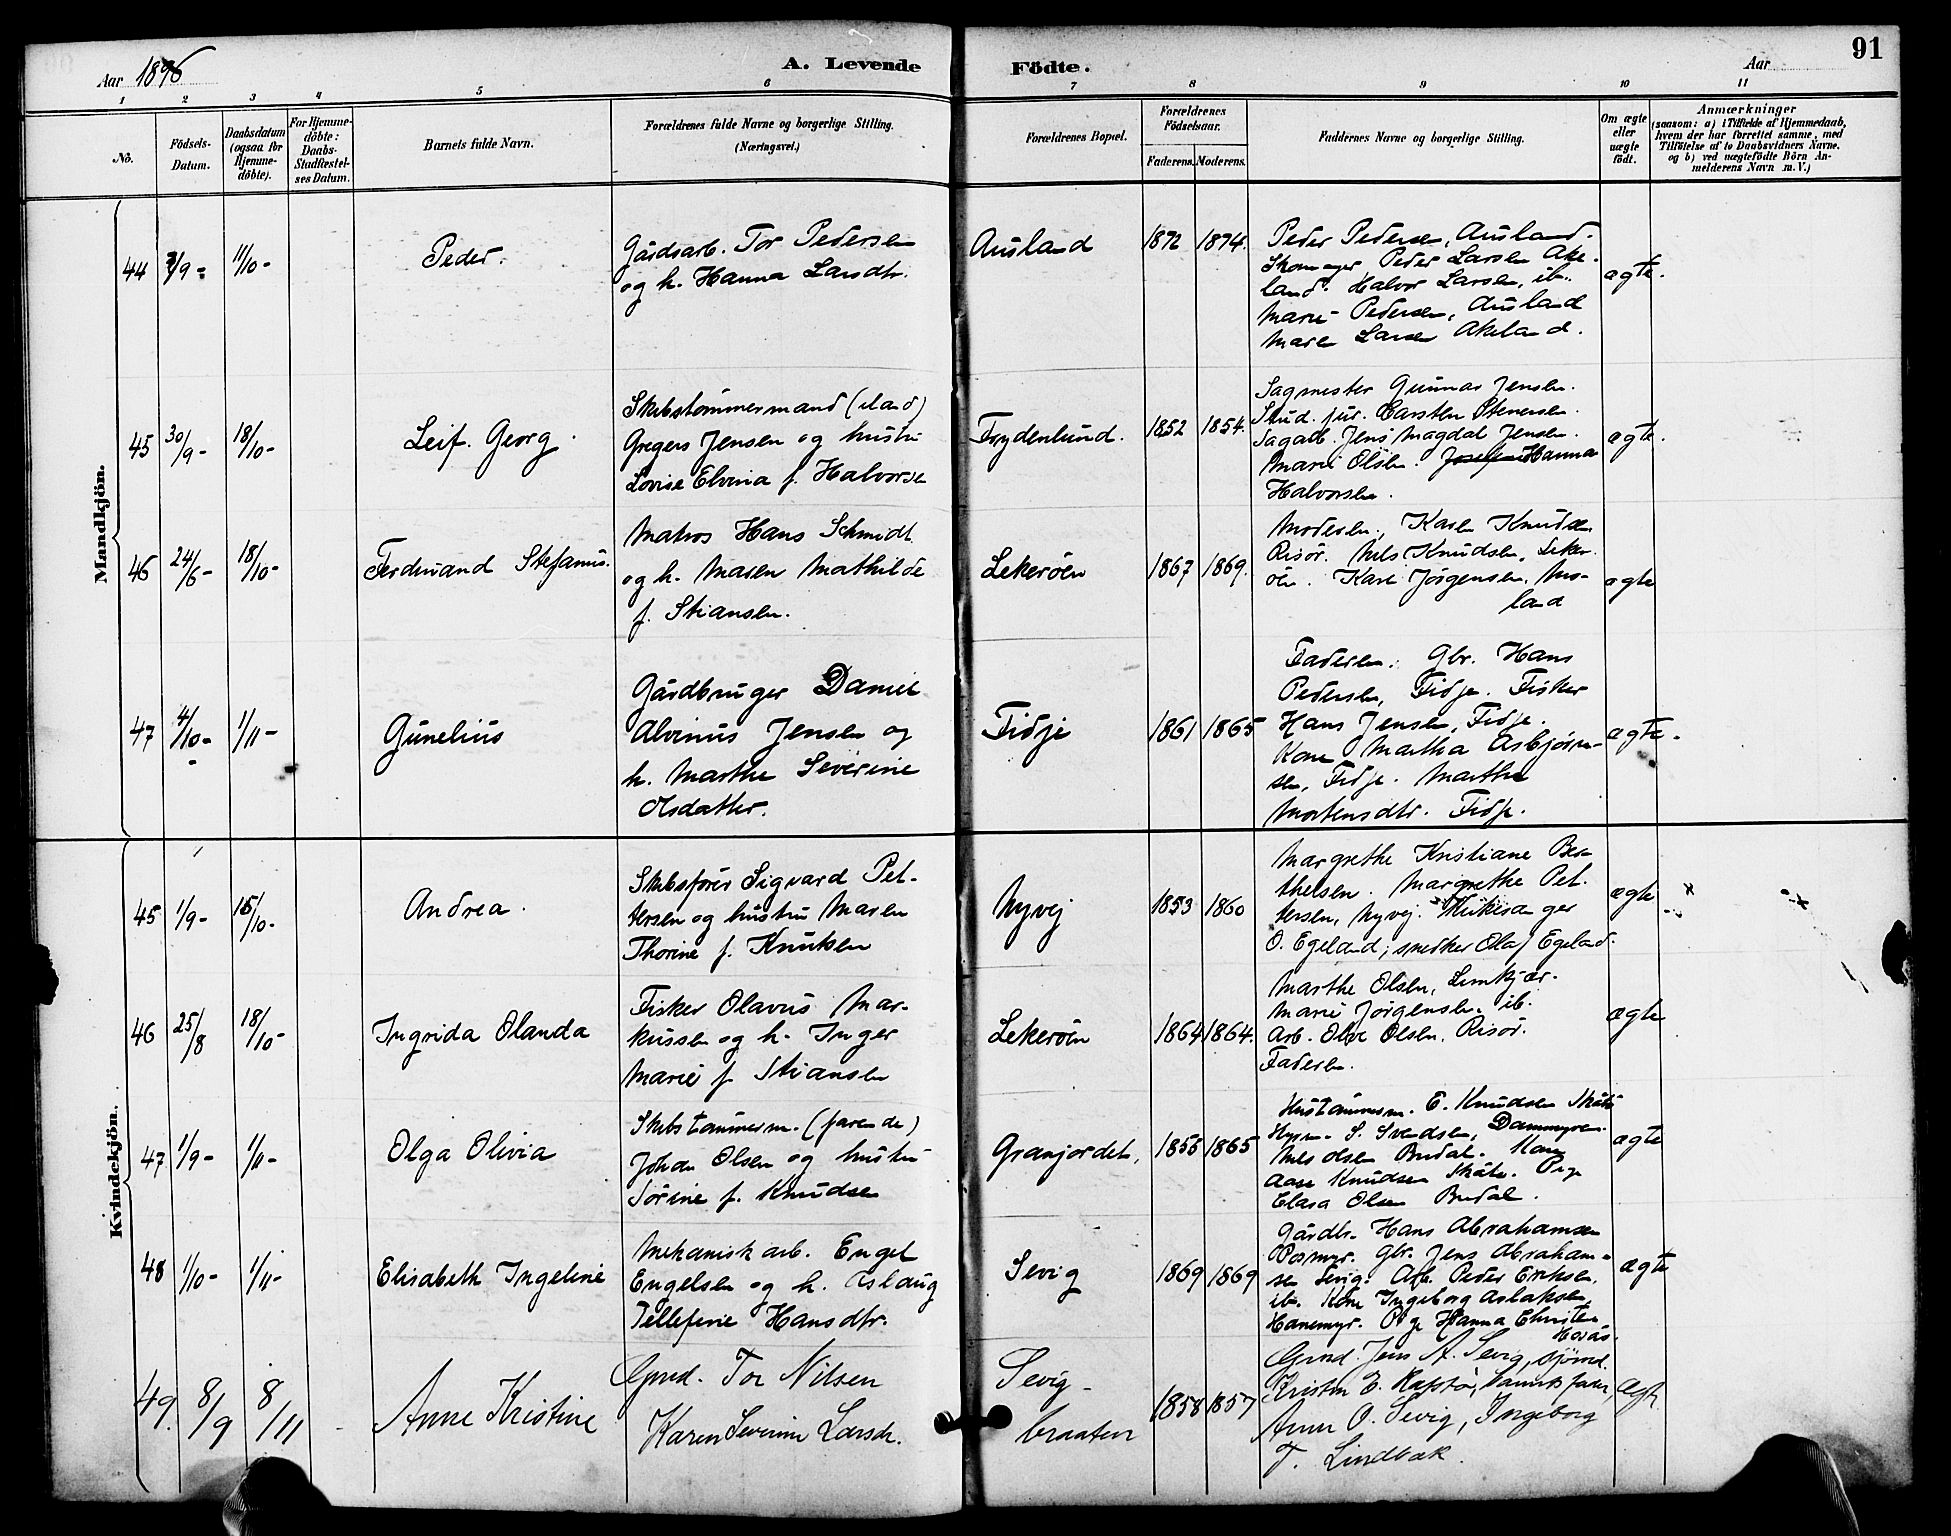 Aar 1896
A. Levende Födte.
Aar
91
1 2 3 4 5 6 7 8 9 10 11
No.
Födsels-Datum.
Daabsdatum (ogsaa for Hjemme-döbte).
For Hjemme-döbte: Daabs-Stadfæstel-ses Datum.
Barnets fulde Navn.
Forældrenes fulde Navne og borgerlige Stilling.
(Næringsvei.)
Forældrenes Bopæl.
Forældrenes Födselsaar.
Faderens. Moderens.
Faddernes Navne og borgerlige Stilling.
Om ægte eller uægte födt.
Anmærkninger
(saasom: a) i Tilfælde af Hjemmedaab,
hvem der har forrettet samme, med
Tilföielse af to Daabsvidners Navne,
og b) ved uægtefödte Börn An-
melderens Navn m. V.)
Mandkjön.
44 /9- 11/10-
Peder.
Gårdsarb. Tor Pedersen
og h. Hanna Larsdtr.
Ausland
1872 1874.
Peder Pedersen, Ausland.
Skomager Peder Larsen Ake-
land. Halvor Larsen, ib.
Marie Pedersen, Ausland
Maren Larsen Akeland.
ægte.
45 30/9- 18/10-
Leif Georg.
Skibstømmermand (iland)
Gregers Jensen og hustru
Lovise Elvina f. Halvorsen
Frydenlund.
1852 1854.
Sagmester Gunnar Jensen.
Stud. jur. Carsten Stenersen.
Sagarb. Jens Magdal Jensen.
Marie Olsen. Hanna
Halvorsen.
ægte.
46 24/6- 18/10-
Ferdinand Stefanus.
Matros Hans Schmidt
og h. Maren Mathilde
f. Stiansen.
Lekerøen
1867 1869.
Moderen, Karen Knudsen
Risør. Nils Knudsen, Leker-
øen. Kare Jørgensen, Mo-
land
ægte
47 4/10- 1/11-
Gunelius
Gårdbruger Daniel
Alvinus Jensen og
h. Marthe Severine
Olsdatter.
Fidje
1861 1865
Faderen. Gbr. Hans
Pedersen, Fidje. Fisker
Hans Jensen, Fidje.
Kone Martha Asbjørn-
sen, Fidje. Marthe
Mortensdtr. Fidje.
ægte.
Kvindekjön.
45 1/9- 15/10-
Andrea.
Skibsfører Sigvard Pet-
tersen og hustru Maren
Thorine f. Knutsen
Nyvej
1853 1860
Margrethe Kristiane Ber-
thelsen. Margrethe Pet-
tersen, Nyvej.
O. Egeland; snedker Olaf Egeland.
ægte x x
46 25/8 18/10-
Ingrida Olanda
Fisker Olavus Mar-
kussen og h. Inger
Marie f. Stiansen
Lekerøen
1864 1864.
Marthe Olsen, Limkjær.
Marie Jørgensen, ib.
Arb. Olsen, Risør.
Faderen.
ægte
47 1/9- 1/11-
Olga Olivia
Skibstømmerm. (farende)
Johan Olsen og hustru
Sørine f. Knudsen
Granjordet,
1856 1865
Hustømmerm. E. Knudsen Skåte
S. Svendsen, Dammyren.
Nils Olsen Brudal. Kone
Aase Knudsen Skåte. Pige
Clara Olsen Brudal.
ægte
48 1/10- 1/11-
Elisabeth Ingeline
Mekanisk arb. Engel
Engelsen og h. Aslaug
Tellefine Hansdtr.
Sevig
1869 1869
Gårdbr. Hans Abrahamsen
Posmyr. Gbr. Jens Abraham-
sen Sevig. Arb. Peder Eriksen,
ib. Kone Ingeborg Aslaksen,
Hanemyr. Pige Hanna Christen-
ægte
49. 8/9 8/11
Anne Kristine
Gmd. Tor Nilsen
Karen Severine Larsdr.
Sevig-
braaten
1858 1857
Gmd. Jens A. Sevig, sjømd.
Kristen E. Røpstø,
Anne O. Sevig, Ingeborg
T. Lindbak.
ægte